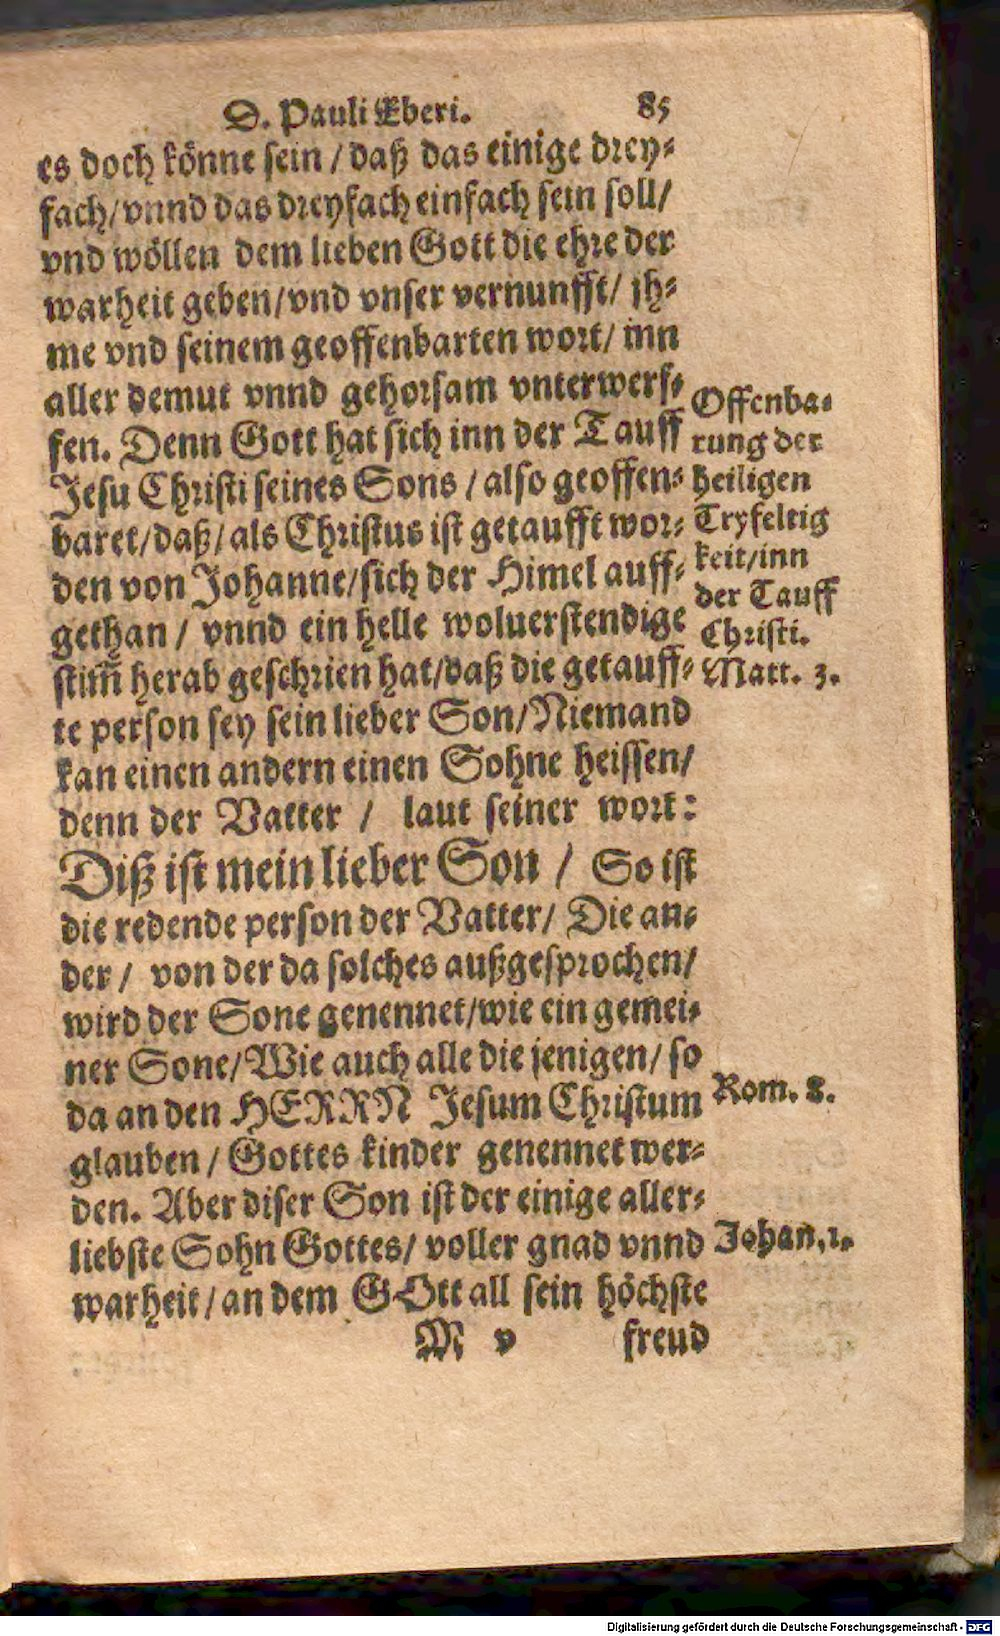 D. Pauli Eberi. 85
es doch könne sein / daß das einige drey-
fach / vnnd das dreyfach einfach sein soll /
vnd wöllen dem lieben Gott die ehre der
warheit geben / vnd vnser vernunfft / jh-
me vnd seinem geoffenbarten wort / inn
aller demut vnnd gehorsam vnterwerf-
fen. Denn Gott hat sich inn der Tauff
Jesu Christi seines Sons / also geoffen-
baret / daß / als Christus ist getaufft wor-
den von Johanne / sich der Himel auff-
gethan / vnnd ein helle woluerstendige
stim̃ herab geschrien hat / daß die getauff-
te person sey sein lieber Son / Niemand
kan einen andern einen Sohne heissen /
denn der Vatter / laut seiner wort:
Diß ist mein lieber Son / So ist
die redende person der Vatter / Die an-
der / von der da solches außgesprochen /
wird der Sone genennet / wie ein gemei-
ner Sone / Wie auch alle die jenigen / so
da an den HERRN Jesum Christum
glauben / Gottes kinder genennet wer-
den. Aber diser Son ist der einige aller-
liebste Sohn Gottes / voller gnad vnnd
warheit / an dem GOtt all sein höchste
M v freud
Offenba-
rung der
heiligen
Tryfeltig
keit / inn
der Tauff
Christi.
Matt. 3.
Rom. 8.
Johan. 1.
Digitalisierung gefördert durch die Deutsche Forschungsgemeinschaft - DFG